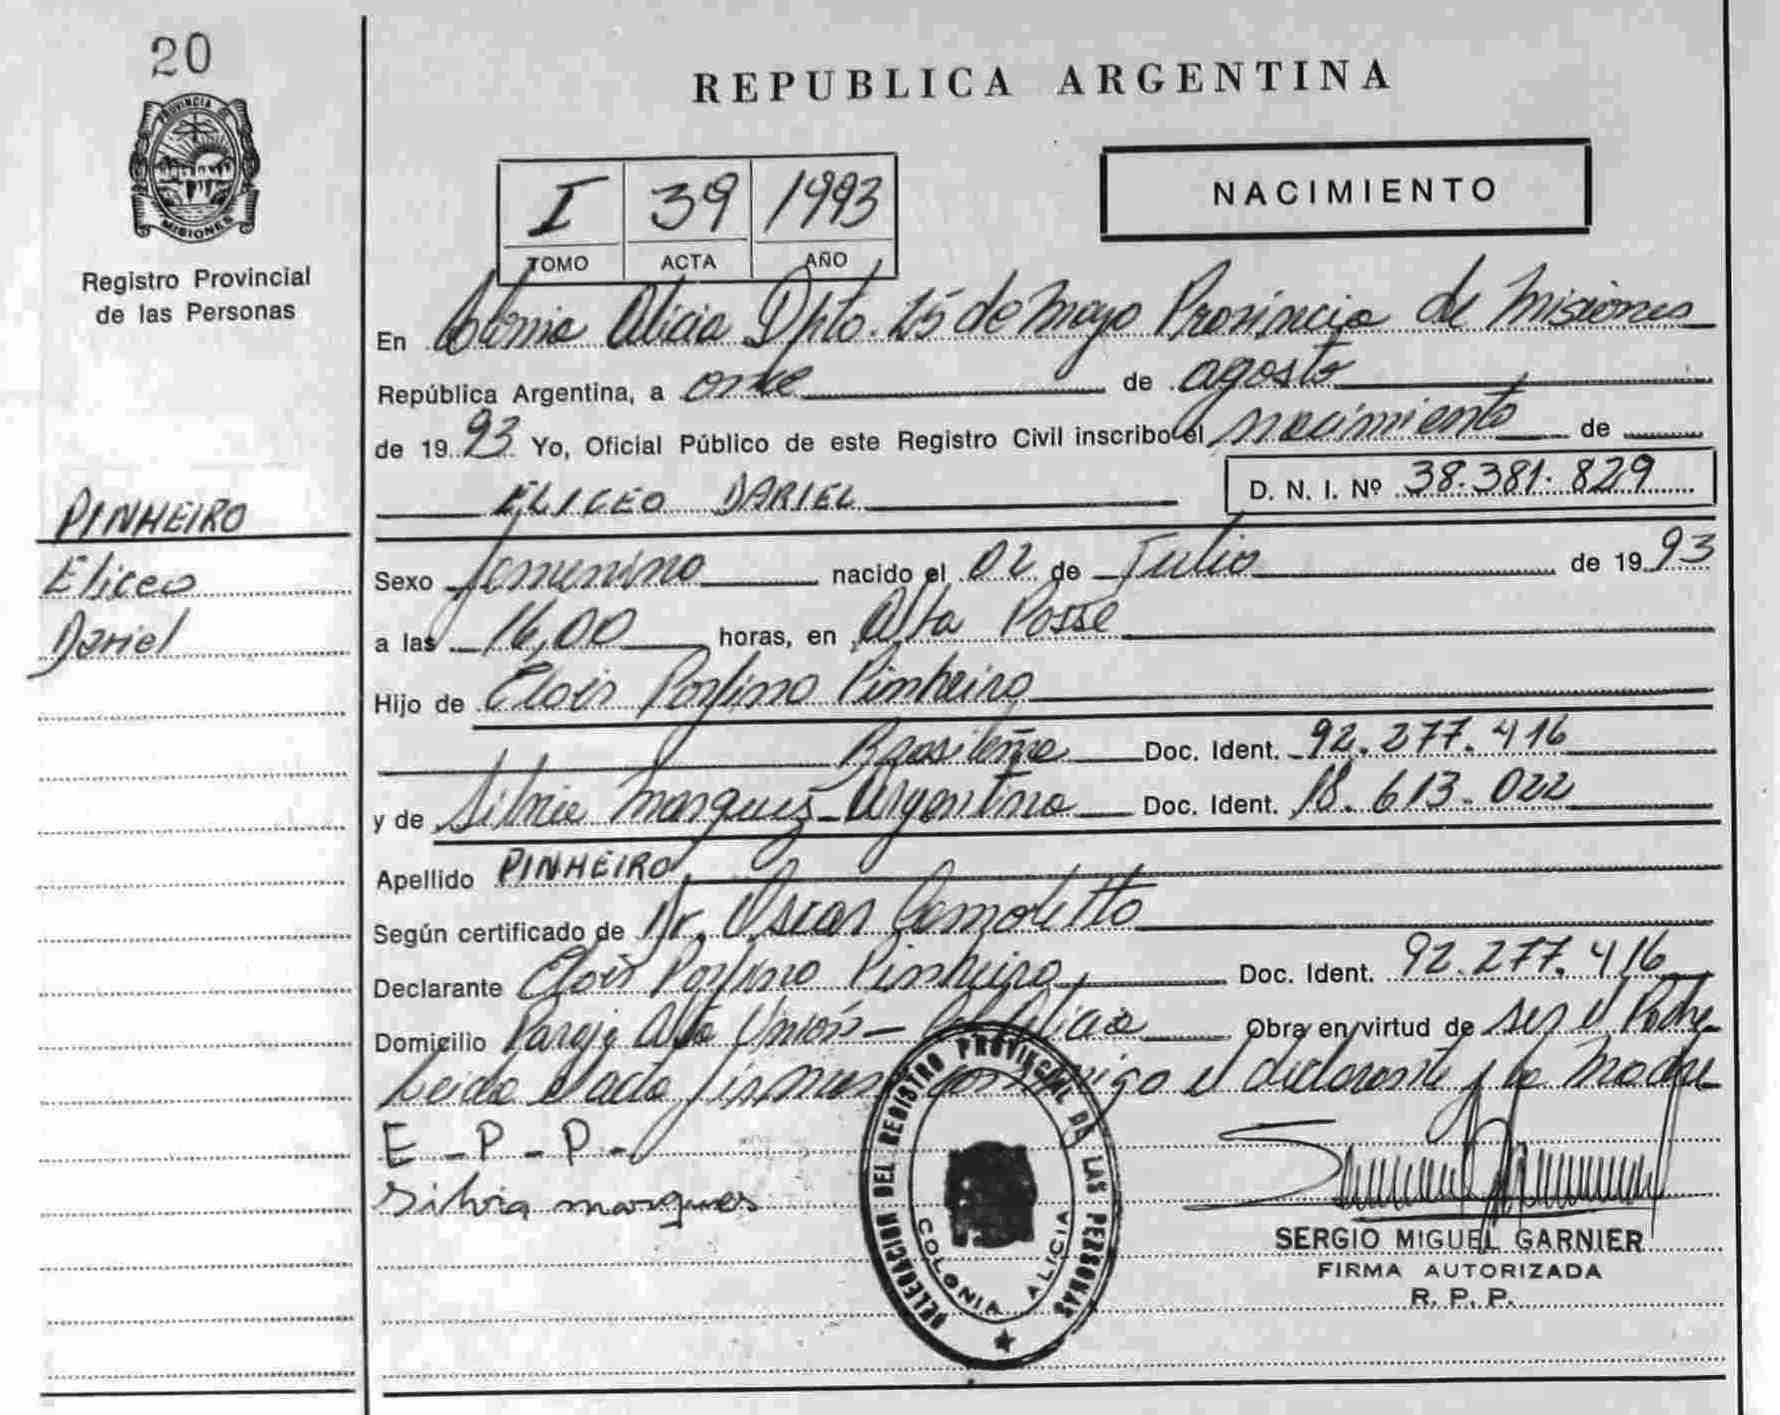 20
PROVINCIA DE
MISIONES
Registro Provincial
de las Personas
PINHEIRO
Eliceo
Dariel
REPUBLICA ARGENTINA
I 39 1993
TOMO ACTA AÑO
NACIMIENTO
En Colonia Alicia Dpto. 25 de Mayo Provincia de Misiones
República Argentina, a once de agosto
de 1993 Yo, Oficial Público de este Registro Civil inscribo el nacimiento de
ELICEO DARIEL D. N. I. Nº 38.381.829
Sexo femenino nacido el 02 de Julio de 1993
a las 16,00 horas, en Alba Posse
Hijo de Elois Porfirio Pinheiro
Brasileña Doc. Ident. 92.277.416
y de Silvia Marquez - Argentina Doc. Ident. 18.613.022
Apellido PINHEIRO
Según certificado de Dr. Oscar
Declarante Elois Porfirio Pinheiro Doc. Ident. 92.277.416
Domicilio Paraje Alta Unión - Col. Alicia Obra en virtud de ser el Padre
Leida el acta firman conmigo el declarante y la Madre
E - P - P -
Silvia marques
DELEGACION DEL REGISTRO PROVINCIAL DE LAS PERSONAS
COLONIA ALICIA
SERGIO MIGUEL GARNIER
FIRMA AUTORIZADA
R. P. P.